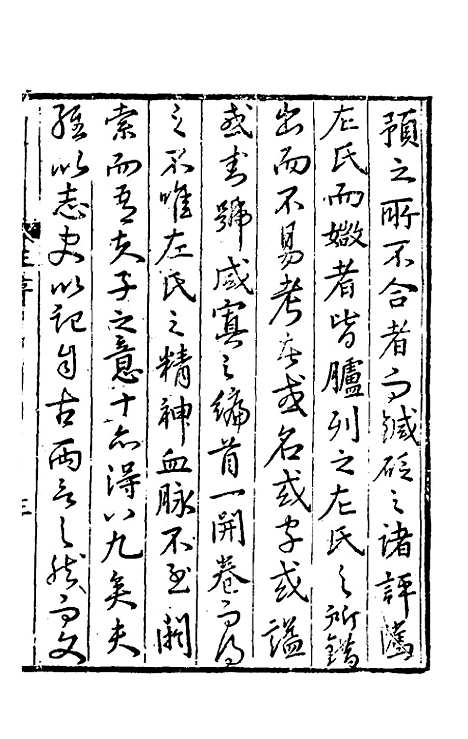 預之所不合者而鍼砭之諸評騭
左氏而媺者皆臚列之左氏之所錯
出而不易考者或名或字或謚
或書號咸寘之编首一開卷而得
之不唯左氏之精神血脉不至闕
索而吾夫子之意十亦得八九矣夫
經以志史以記自古兩言之然而文